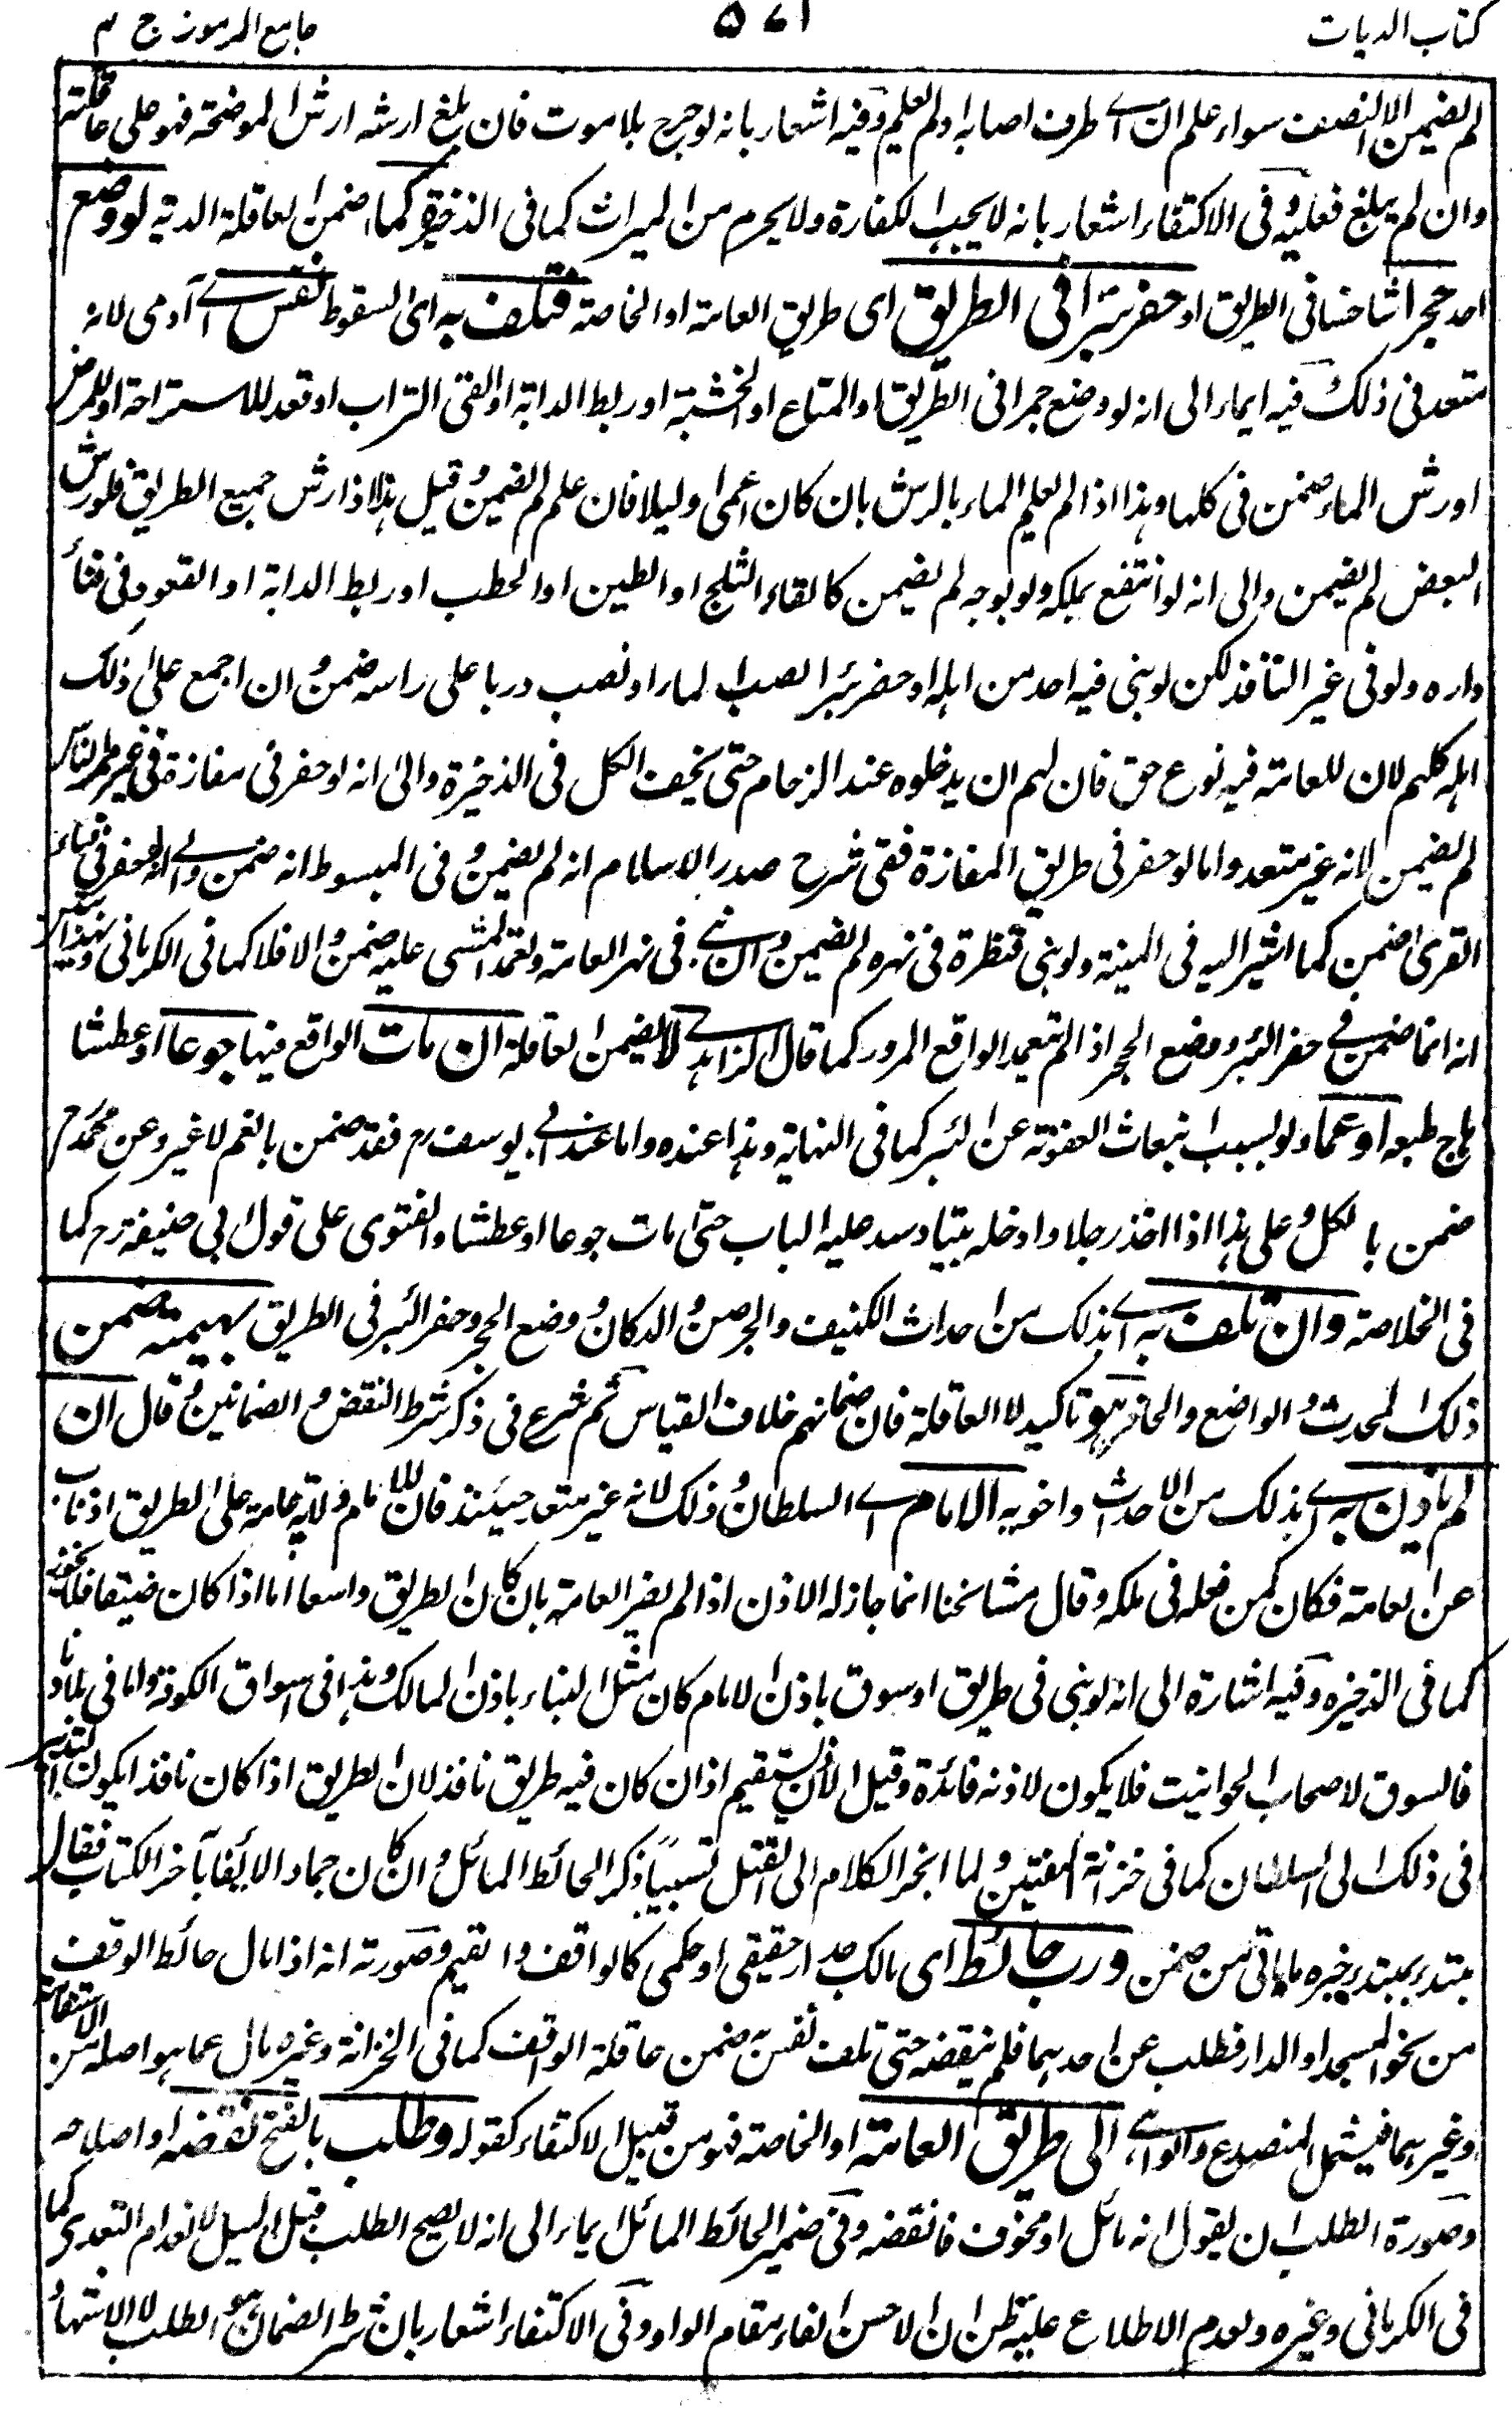 كتاب الديات ۵۷۱ جامع الرموز ج ۲
لم يضمن الا النصف سواء علم ان اي طرف اصابه او لم يعلم وفيه اشعار بانه لو جرح بلا موت فان بلغ ارشه ارش الموضحة فهو على عاقلته
وان لم يبلغ فعليه وفى الاكتفاء اشعار بانه لا يجب الكفارة ولا يحرم من الميراث كما فى الذخيرة كما ضمن العاقلة الدية لو وضع
احد حجرا شاخصا فى الطريق او حفر بئرا فى الطريق اى طريق العامة او الخاصة فتلف به اى السقوط نفس اے آدمى لانه
متعد فى ذلك وفيه ايماء الى انه لو وضع جمرا فى الطريق او المتاع او الخشبة او ربط الدابة او القى التراب او قعد للاستراحة او للمرض
او رش الماء ضمن فى كلها وهذا اذا لم يعلم الماء بالرش بان كان اعمى او ليلا فان علم لم يضمن وقيل هذا اذا رش جميع الطريق فلو رش
البعض لم يضمن والى انه لو انتفع بملكه ولو بوجه لم يضمن كالقاء الثلج او الطين او الحطب او ربط الدابة او القعود فى فناء
داره ولو فى غير النافذ لكن لو بنى فيه احد من اهله او حفر بئرا لصب الماء او نصب دربا على راسه ضمن وان اجمع على ذلك
اهله كلهم لان للعامة فيه نوع حق فان لهم ان يدخلوه عند الزحام حتى يخف الكل فى الذخيرة والى انه لو حفر فى مفازة فى غير ممر الناس
لم يضمن لانه غير متعد واما لو حفر فى طريق المفازة ففى شرح صدر الاسلام انه لم يضمن وفى المبسوط انه ضمن والى انه لو حفر فى فناء
القرى ضمن كما اشير اليه فى المنية ولو بنى قنطرة فى نهره لم يضمن وان بنى فى نهر العامة وتعمد المشى عليه ضمن والا فلا كما فى الكرمانى وبهذا
انه انما ضمن فى حفر البئر ووضع الحجر اذا لم يتعمد الواقع المرور كما قال الزاهدے لا يضمن العاقلة ان مات الواقع فيها جوعا او عطشا
هاج طبعه او غما ولو بسبب انبعاث العفونة عن البئر كما فى النهاية وهذا عنده واما عند ابى يوسف رح فقد ضمن بالغم لا غير وعن محمد رح
ضمن بالكل وعلى هذا اذا اخذ رجلا وادخله بيتا وسد عليه الباب حتى مات جوعا او عطشا والفتوى على قول ابى حنيفة رح كما
فى الخلاصة وان تلف به اے بذلك من احداث الكنيف والجرصن والدكان ووضع الحجر وحفر البئر فى الطريق بهيمة ضمن
ذلك المحدث والواضع والحافر هو تاكيد لا العاقلة فان ضمانهم خلاف القياس ثم شرع فى ذكر شرط النقض والضمانين وقال ان
لم ياذن به اے بذلك من الاحداث واخويه الامام اے السلطان وذلك لانه غير متعد حينئذ فان للامام ولاية عامة على الطريق اذ ناب
عن العامة فكان كمن فعله فى ملكه وقال مشائخنا انما جاز له الاذن اذا لم يضر العامة بان كان الطريق واسعا اما اذا كان ضيقا فلا يجوز
كما فى الذخيرة وفيه اشارة الى انه لو بنى فى طريق او سوق باذن الامام كان مثل البناء باذن المالك وهذا فى اسواق الكوفة واما فى بلادنا
فالسوق لاصحاب الحوانيت فلا يكون لاذنه فائدة وقيل الاذن يستقيم اذا كان فيه طريق نافذ لان الطريق اذا كان نافذا يكون التدبير
فى ذلك الى السلطان كما فى خزانة المفتين ولما انجر الكلام الى القتل تسبيبا ذكر الحائط المائل وان كان جمادا لائقا بآخر الكتاب فقال
مبتدء بمبتدء خبره ما ياتى من ضمن ورب حائط اى مالك جدار حقيقى او حكمى كالواقف والقيم وصورته انه اذا مال حائط الوقف
من نحو المسجد او الدار فطلب عن احدهما فلم ينقضه حتى تلف نفس به ضمن عاقلة الواقف كما فى الخزانة وغيره مال عما هو اصله من الاستقامة
وغيرهما فيشمل المنصدع والواهى الى طريق العامة او الخاصة فهو من قبيل الاكتفاء كقوله وطلب بالفتح نقضه او اصلاحه
وصورة الطلب ان يقول انه مائل او مخوف فانقضه وفى ضمير الحائط المائل ايماء الى انه لا يصح الطلب قبل الميل لانعدام التعدى كما
فى الكرمانى وغيره ولعدم الاطلاع عليه ظن ان الاحسن الفاء مقام الواو وفى الاكتفاء اشعار بان شرط الضمان هو الطلب لا الاشهاد